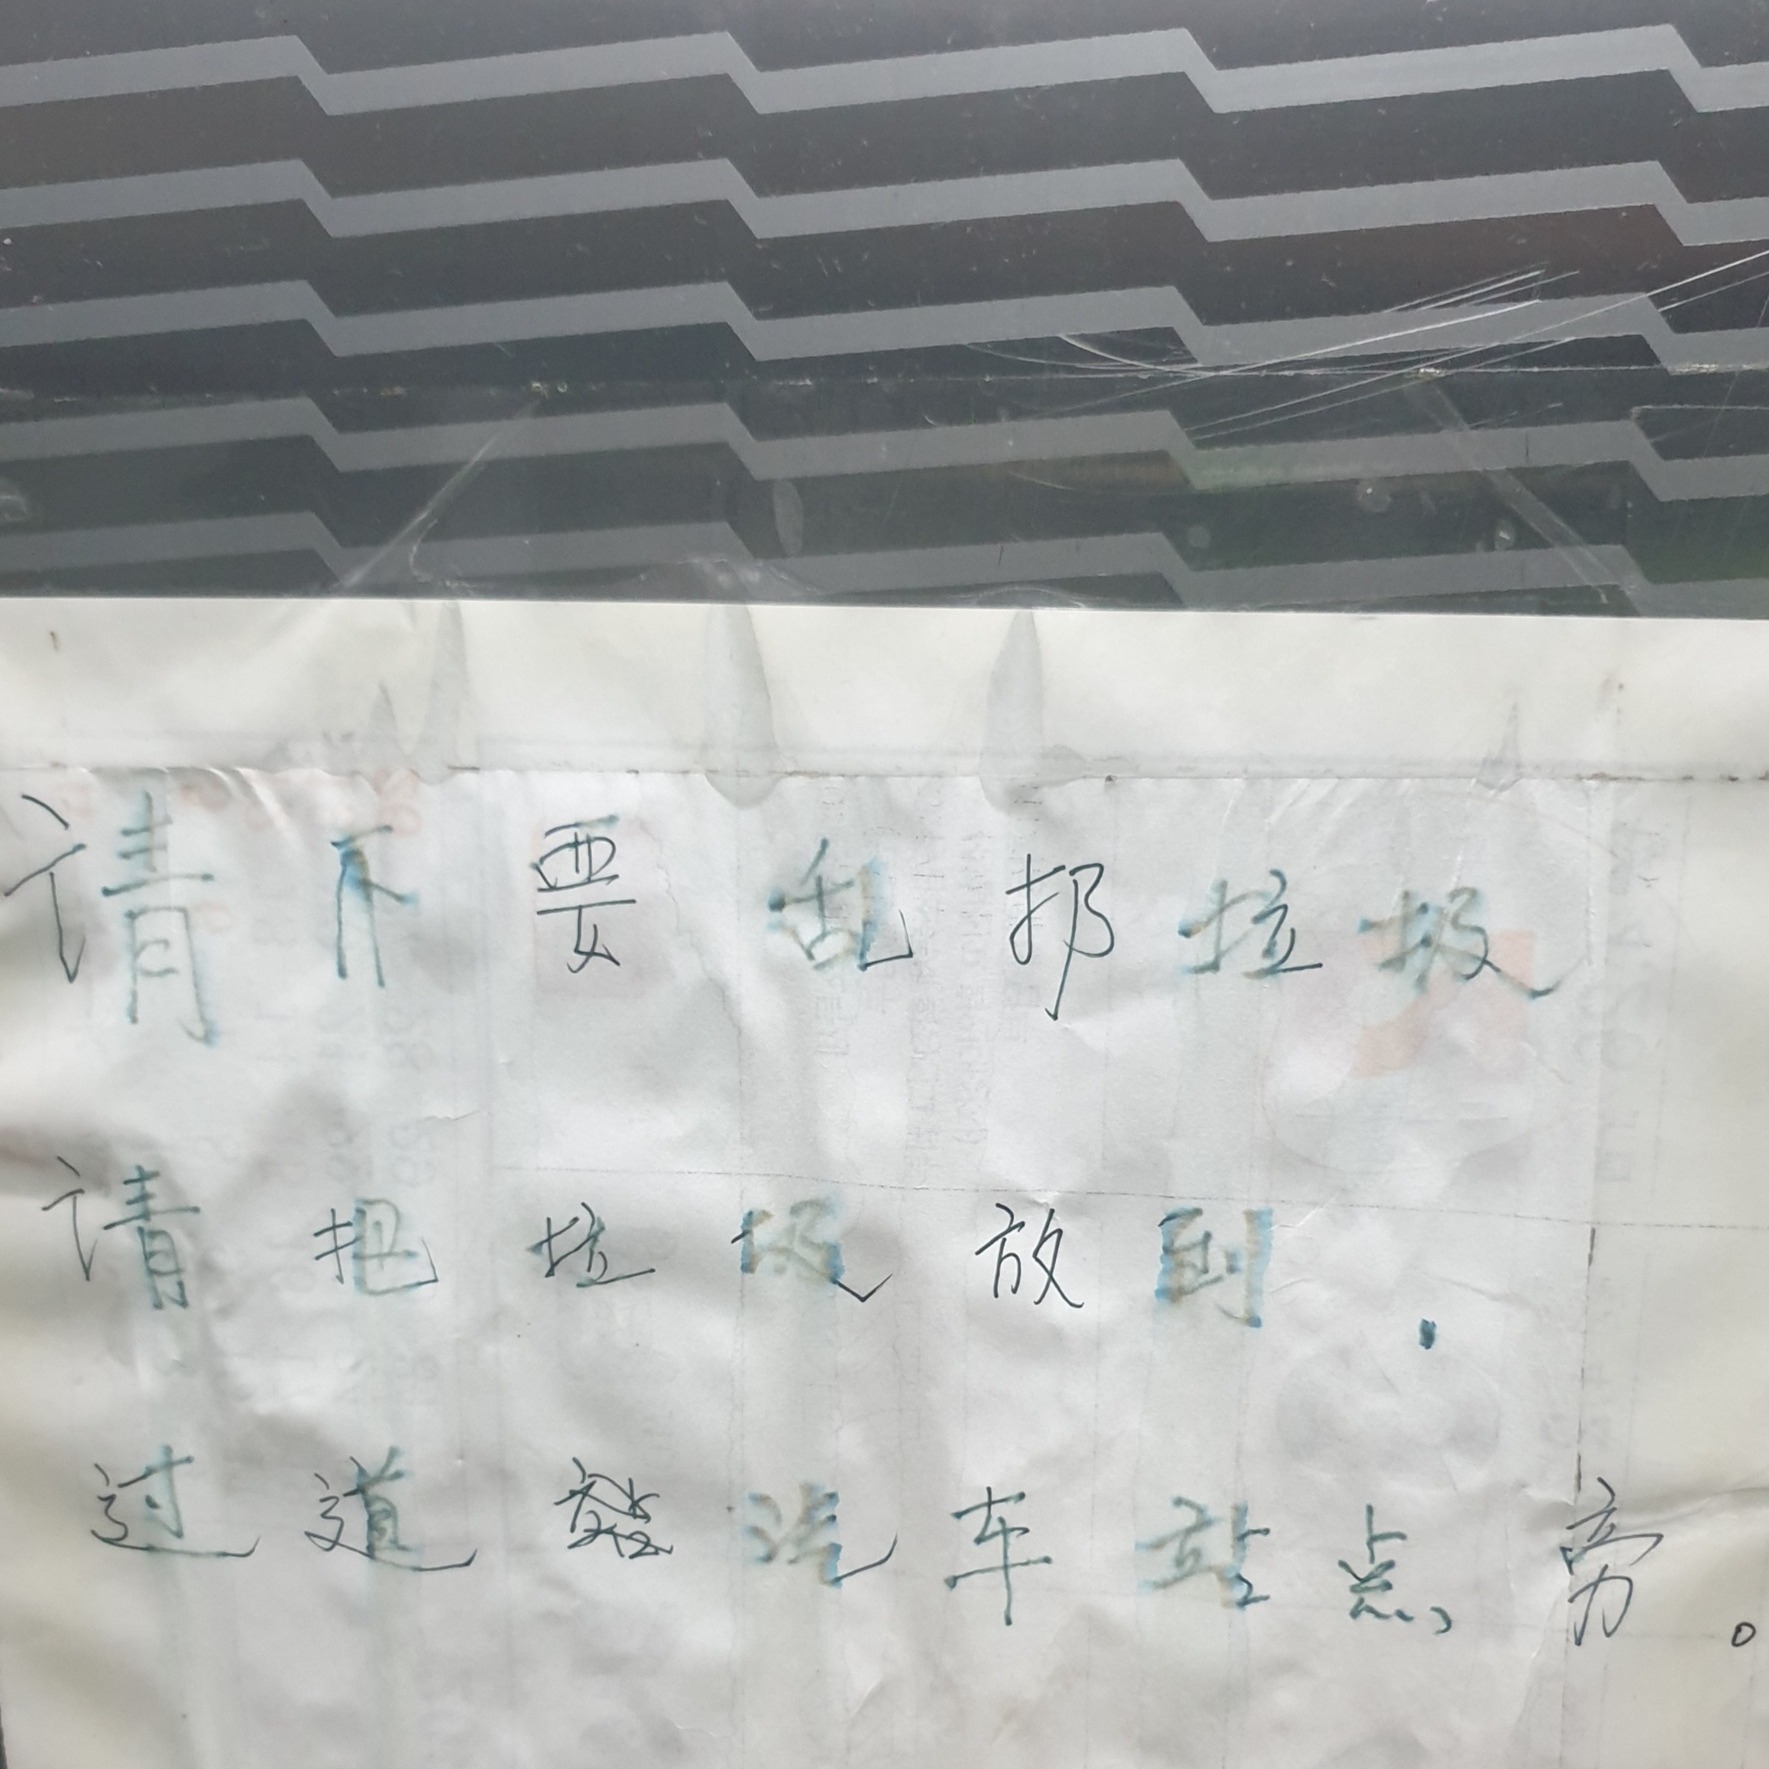 请不要乱扔垃圾
请把垃圾放到
过道 汽车站点旁。